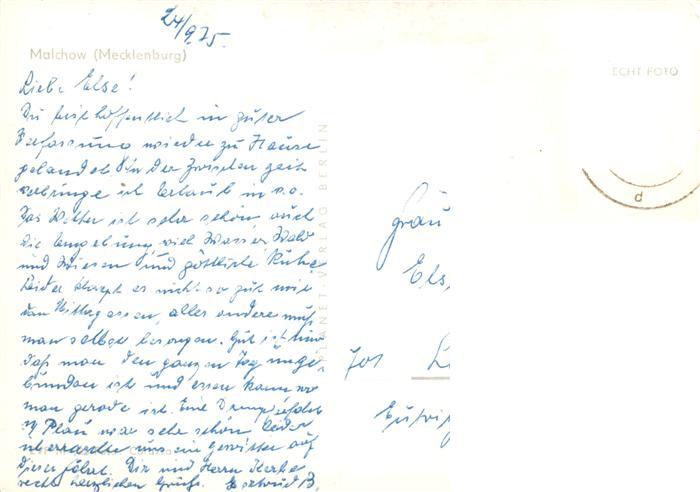 24/9.75.
Malchow (Mecklenburg)
ECHT FOTO
Liebe Else!
Du bist hoffentlich in guter
Verfassung wieder zu Hause
gelandet. In der Zwischen zeit
verbringe ich Urlaub in v.o.
Das Wetter ist sehr schön auch
die Umgebung viel Wasser Wald
und Wiesen und göttliche Ruhe.
Leider klappt es nicht so gut mit
dem Mittagessen, alles andere muß
man selber besorgen. Gut ist nur
daß man den ganzen Tag unge-
bunden ist und essen kann wo
man gerade ist. Eine Dampferfahrt
n. Plau war sehr schön leider
überraschte uns ein Gewitter auf
dieser Fahrt. Dir und Herrn
recht herzlichen Gruß. Gertrud B.
PLANET-VERLAG BERLIN
d
Frau
Els
701 L